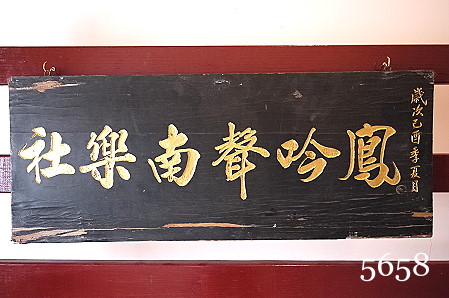 歲次己酉季夏月
鳳吟聲南樂社
5658